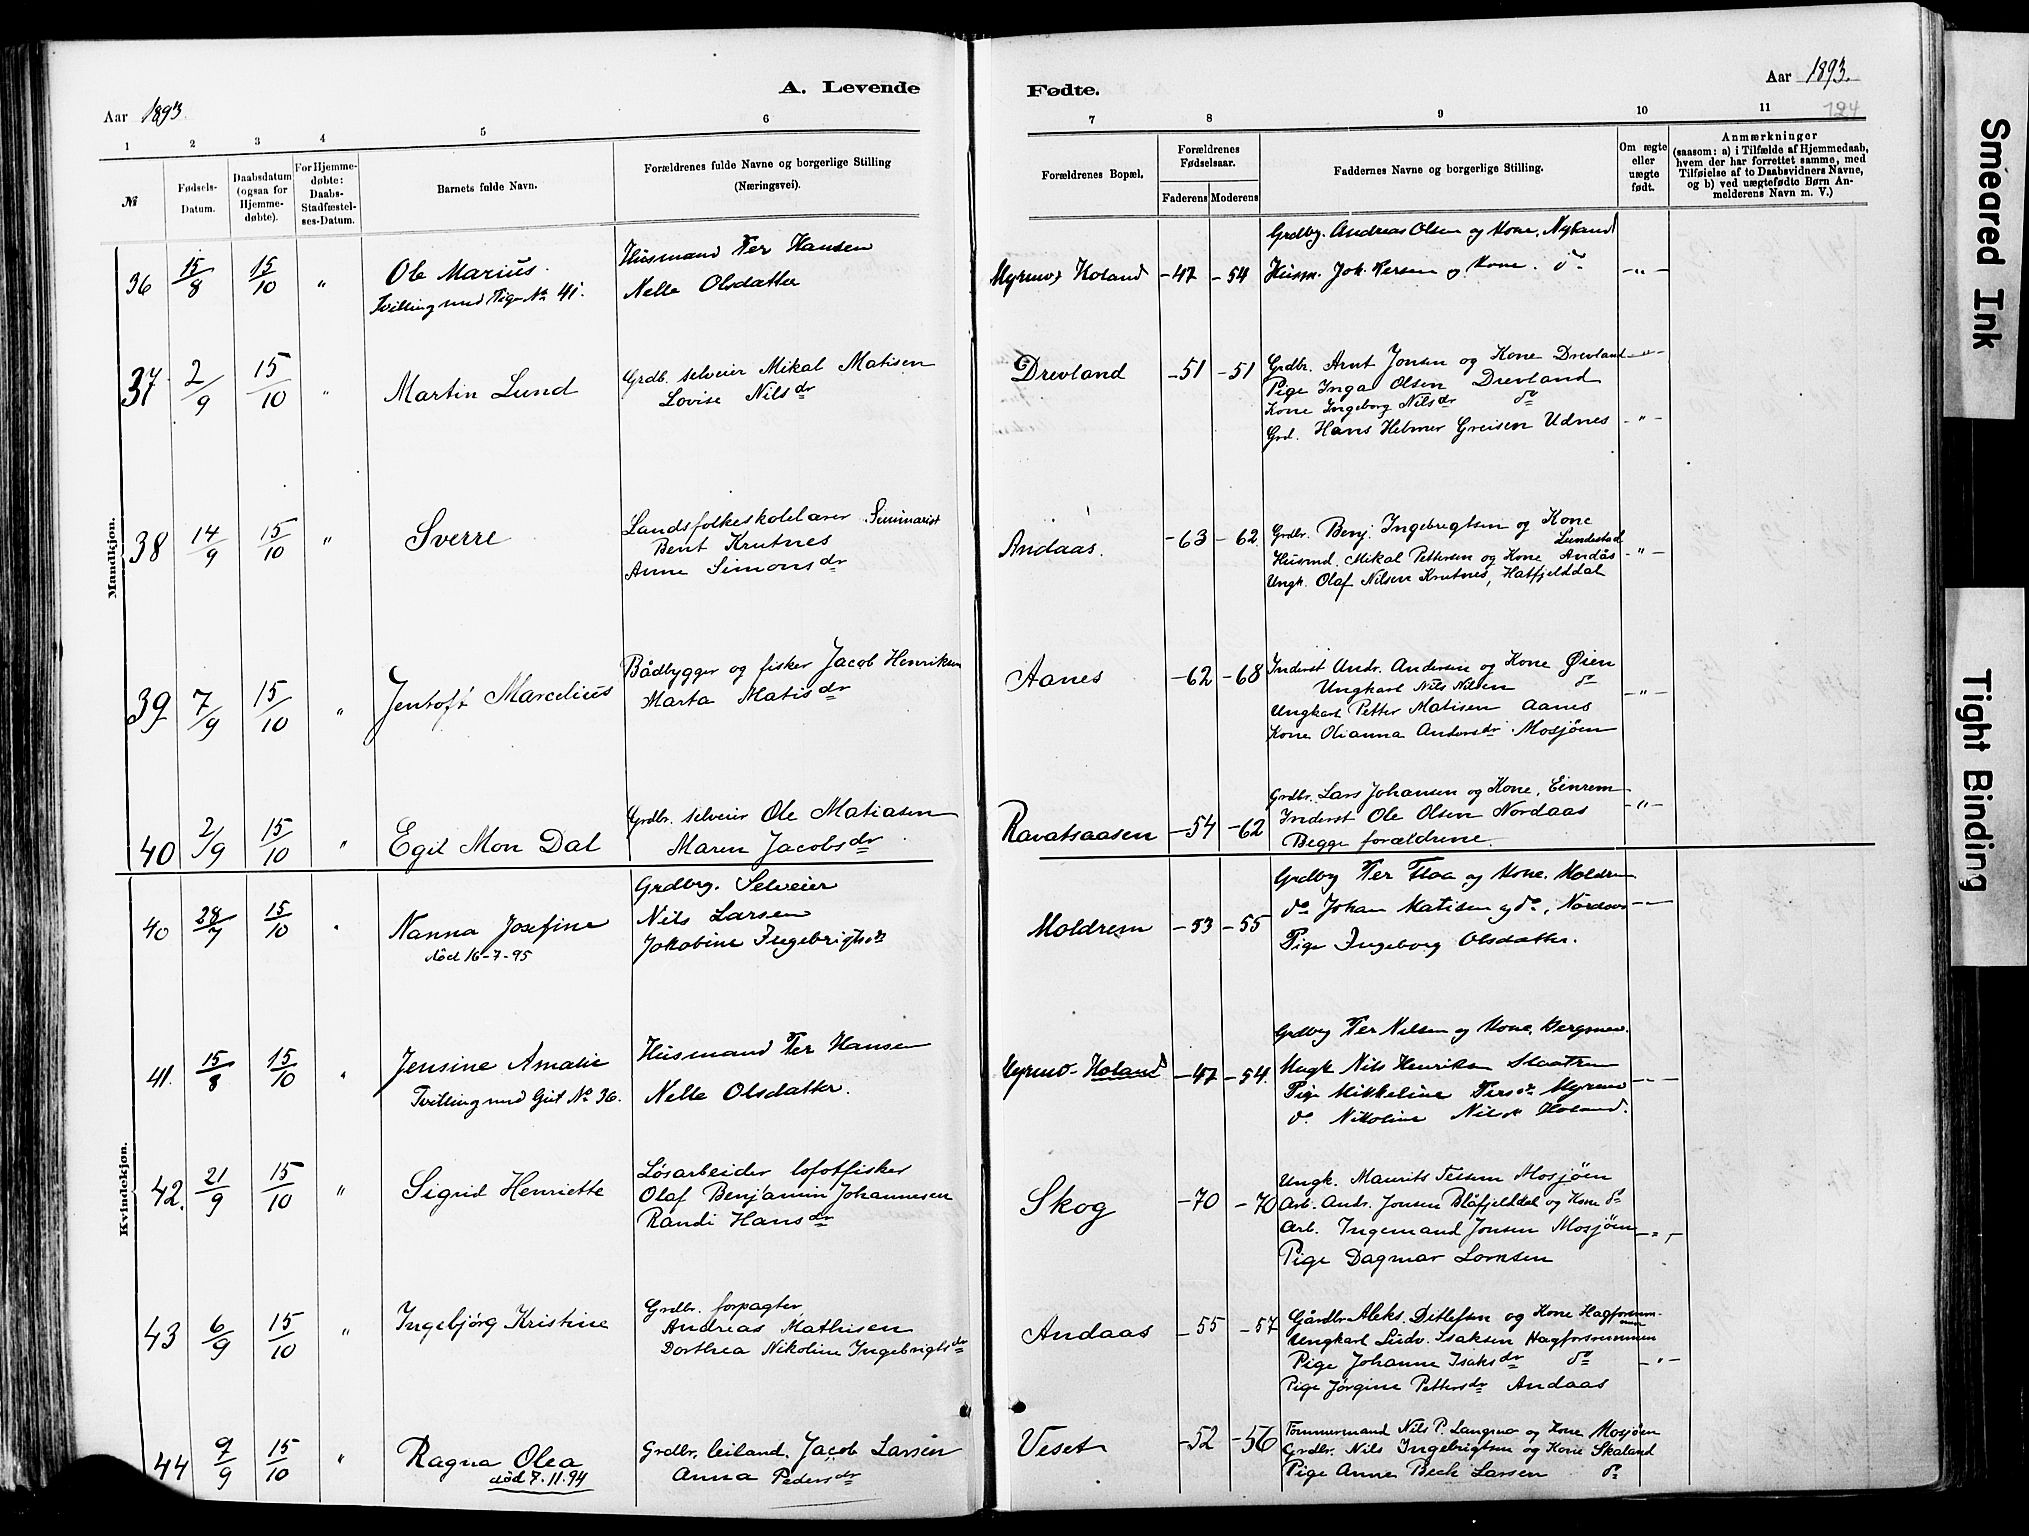 Aar 1893.
A. Levende
Fødte.
Aar 1893.
124
1 2 3 4 5 6 7 8 9 10 11
№
Fødsels-Datum.
Daabsdatum (ogsaa for Hjemme-døbte).
For Hjemme-døbte: Daabs-Stadfæstel-ses-Datum.
Barnets fulde Navn.
Forældrenes fulde Navne og borgerlige Stilling
(Næringsvei).
Forældrenes Bopæl.
Forældrenes Fødselsaar.
Faderens Moderens
Faddernes Navne og borgerlige Stilling.
Om ægte eller uægte født.
Anmærkninger
(saasom: a) i Tilfælde af Hjemmedaab,
hvem der har forrettet samme, med
Tilføielse af to Daabsvidners Navne,
og b) ved uægtefødte Børn An-
melderens Navn m. V.)
Mandkjøn.
36 15/8 15/10 " Ole Marius.
Tvilling med Pige No 41.
Husmand Per Hansen
Nelle Olsdatter
Myrmo, Holand -47 -54
Grdbg. Andreas Olsen og Kone, Nyland
Husm. Joh. Persen og Kone. do -"-
37 2/9 15/10 " Martin Lund
Grdb. selveier Mikal Matisen
Lovise Nilsdr
Drevland -51 -51
Grdbr. Arnt Jonsen og Kone Drevland -"-
Pige Inga Olsen Drevland
Kone Ingeborg Nilsdr do
Grd. Hans Helmer Greisen Udnes -"-
38 14/9 15/10 " Sverre
Landsfolkeskolelærer Seminarist
Bent Krutnes
Anne Simonsdr
Andaas. -63 -62
Grdbr. Benj. Ingebregtsen og Kone
Lundestad
Husmd. Mikal Pettersen og Kone Andås -"-
Ungk. Olaf Nilsen Krutnes, Hatfjelddal
39 7/9 15/10 " Jentoft Marcelius
Bådbygger og fisker Jacob Henriksen
Marta Matisdr
Aanes -62 -68
Inderst Andr. Andersen og Kone Øien
Ungkarl Nils Nilsen do -"-
Ungkarl Petter Matisen Aanes
Kone Olianna Andersdr Mosjøen
40 2/9 15/10 " Egil Mon Dal
Grdbr. selveier Ole Matiasen
Maren Jacobsdr
Ravatsaasen -54 -62
Grdbr. Lars Johansen og Kone, Einrem
Inderst Ole Olsen Nordaas -"-
Begge forældrene.
Kvindekjøn.
40 28/7 15/10 " Nanna Josefine
død 16-7-95
Grdbrg. Selveier
Nils Larsen
Jokobine Ingebrigtsdr
Moldrem -53 -55
Grdbrg Per Floa og Kone. Moldrem
do Johan Matisen og do, Nordaas -"-
Pige Ingeborg Olsdatter.
41. 15/8 15/10 " Jensine Amalie
Tvilling med Gut No 36.
Husmand Per Hansen
Nelle Olsdatter.
Myrmo-Holand -47 -54.
Grdbrg Per Nilsen og Kone,
Ungk Nils Henriksen
Pige Mikkeline Persdr Myrmo -"-
do. Nikoline Nilsdr Holand.
42. 21/9 15/10 " Sigrid Henriette
Løsarbeider lofotfisker
Olaf Benjamin Johannesen
Randi Hansdr
Skog -70 -70
Ungk. Maurits Mosjøen
Arb. Andr. Jonsen Blåfjelldal og Kone do
Arb. Ingemand Jonsen Mosjøen -"-
Pige Dagmar Lornsen
43 6/9 15/10 " Ingebjørg Kristine
Grdbr. forpagter,
Andreas Mathisen
Dorthea Nikoline Ingebrigtsdr
Andaas -55 -57
Gårdbr Aleks. Ditlefsen og Kone
Ungkarl Ludv. Isaksen
Pige Johanne Isaksdr do -"-
Pige Jørgine Pettersdr Andaas
44 9/9 15/10 " Ragna Olea
død 7.11.94
Grdbr. leiland. Jacob Larsen
Anna Pedersdr
Veset -52 -56
Tømmermand Nils P. Langmo og Kone Mosjøen
Grdbr. Nils Ingebrigtsen og Kone Skaland
Pige Anne Beck Larsen do
Smeared Ink
Tight Binding